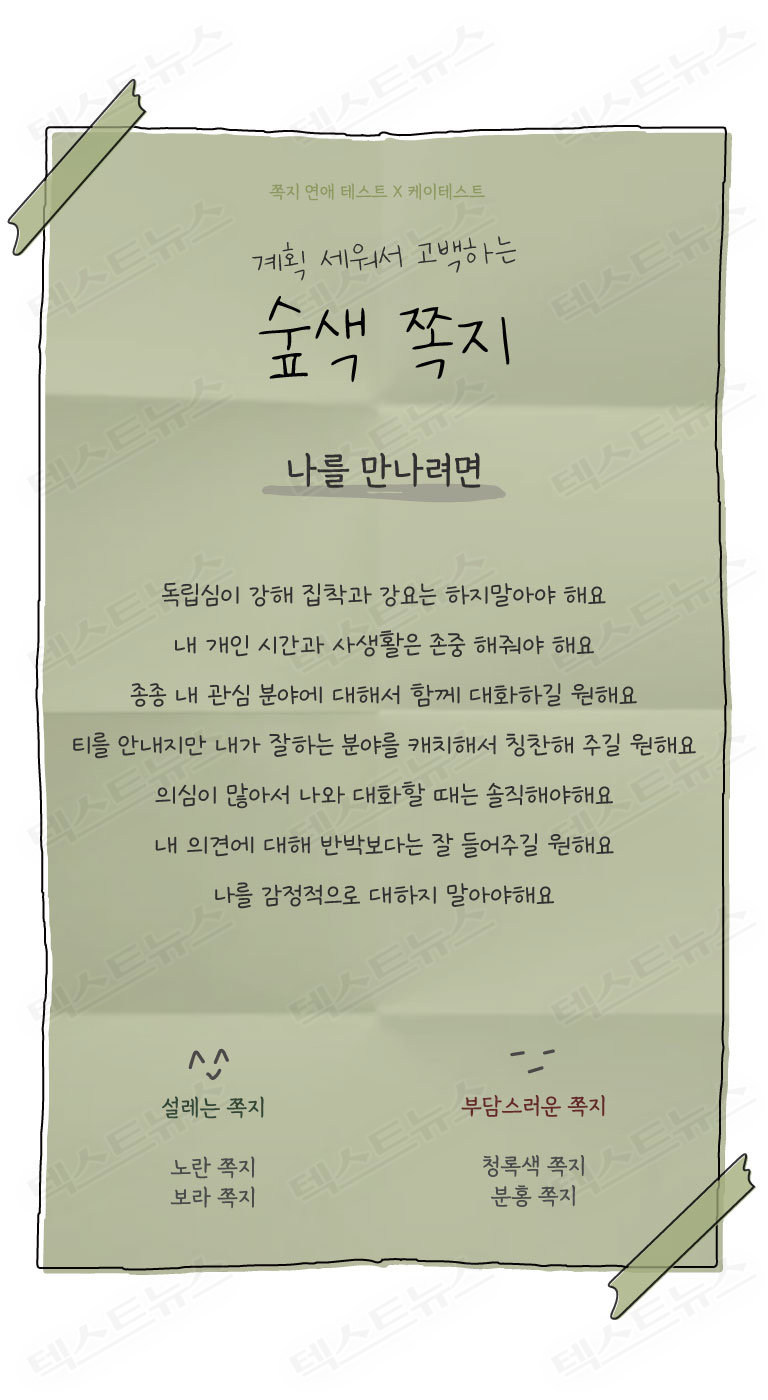 쪽지 연애 테스트 X 케이테스트
계획 세워서 고백하는
숲색 쪽지
나를 만나려면
독립심이 강해 집착과 강요는 하지말아야 해요
내 개인 시간과 사생활은 존중 해줘야 해요
종종 내 관심 분야에 대해서 함께 대화하길 원해요
티를 안내지만 내가 잘하는 분야를 캐치해서 칭찬해 주길 원해요
의심이 많아서 나와 대화할 때는 솔직해야해요
내 의견에 대해 반박보다는 잘 들어주길 원해요
나를 감정적으로 대하지 말아야해요
설레는 쪽지
노란 쪽지
보라 쪽지
부담스러운 쪽지
청록색 쪽지
분홍 쪽지
텍스트뉴스